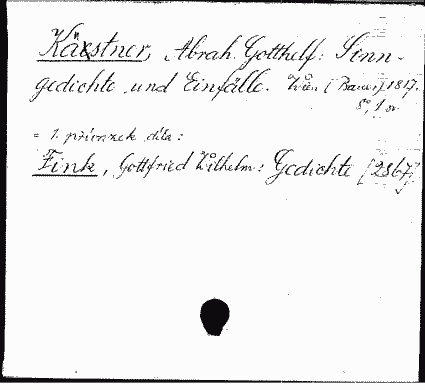 Kästner, Abrah. Gotthelf: Sinn-
gedichte und Einfälle. Wien (Bauer) 1817.
8°, 1 sv
= 1. přívazek díla:
Fink, Gottfried Wilhelm: Gedichte [2867]